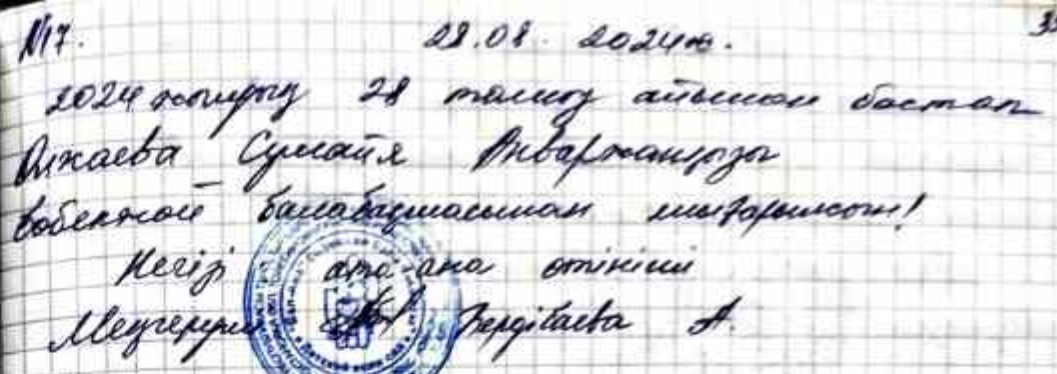 №17. 28.08. 2024ж.
2024 жылдың 28 тамыз айынан бастап
Сумайя Анваржанқызы
балабақшасынан шығарылсын!
Негізі ата-ана өтініші
Меңгеруші Бердібаева А.